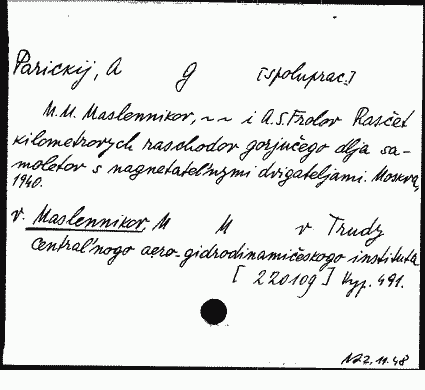 Parickij, A G [spoluprac.]
M.M. Maslennikov, ~ ~ i A.S. Frolov Rasčet
kilometrovych raschodov gorjučego dlja sa-
moletov s nagnetatel'nymi dvigateljami. Moskva,
1940.
v. Maslennikov, M M v Trudy
Central'nogo aero-gidrodinamičeskogo instituta
[220109] Vyp. 491.
2.11.48